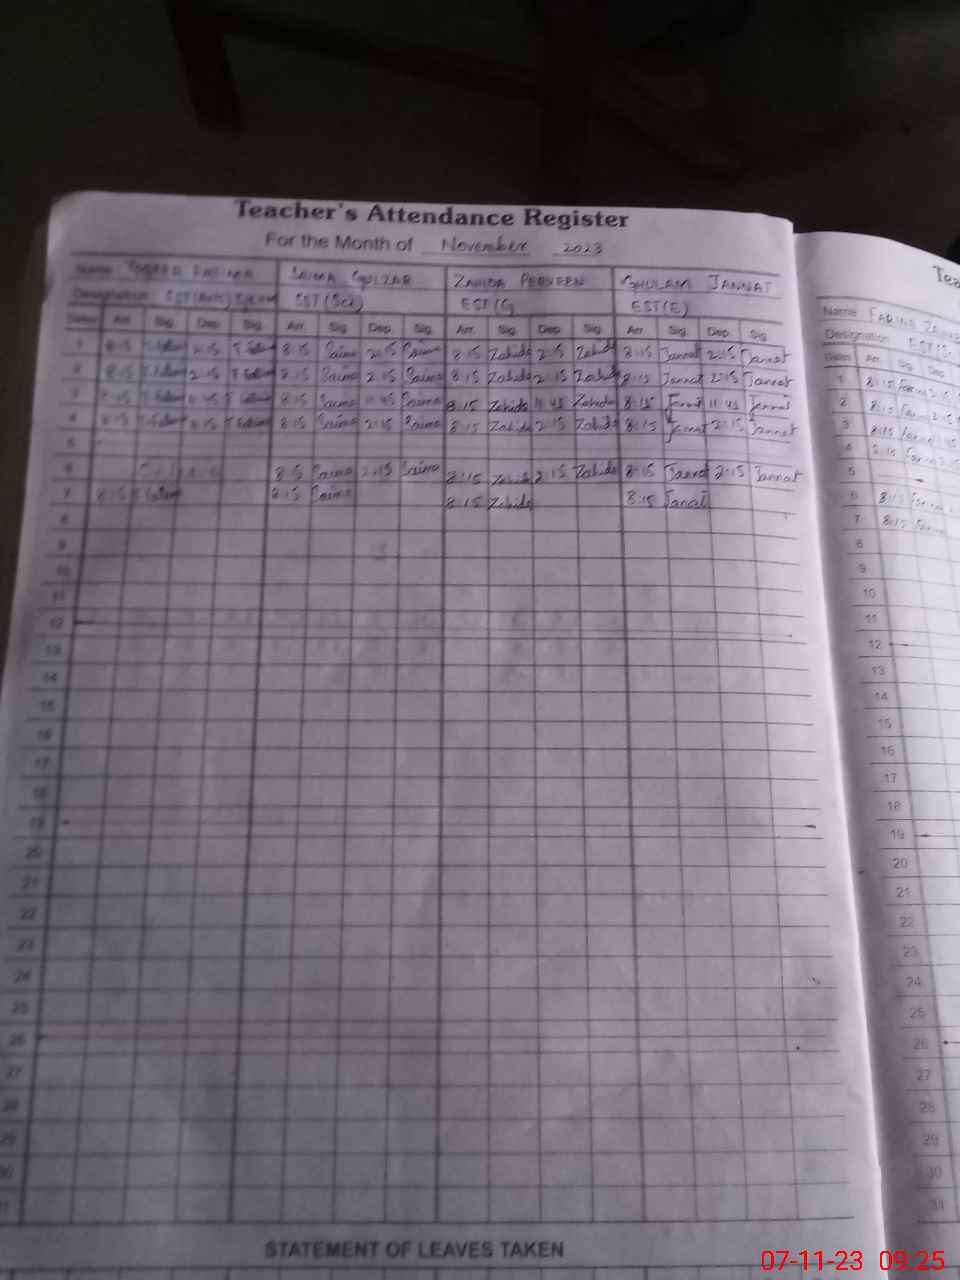 Teacher's Attendance Register
For the Month of November 2023
Name SAIMA GULZAR ZAHIDA PERVEEN GHULAM JANNAT
Designation EST(Sci) EST(G EST(E)
Dates Arr. Sig. Dep. Sig. Arr. Sig. Dep. Sig. Arr. Sig. Dep. Sig. Arr. Sig. Dep. Sig.
1 8:15 2:15 8:15 Saima 2:15 Saima 8:15 Zahida 2:15 Zahida 8:15 Jannat 2:15 Jannat
2 8:15 2:15 8:15 Saima 2:15 Saima 8:15 Zahida 2:15 Zahida 8:15 Jannat 2:15 Jannat
3 8:15 11:45 8:15 Saima 11:45 Saima 8:15 Zahida 11:45 Zahida 8:15 Jannat 11:45 Jannat
4 8:15 8:15 Saima 2:15 Saima 8:15 Zahida 2:15 Zahida 8:15 Jannat 2:15 Jannat
5
6 8:15 Saima 2:15 Saima 8:15 Zahida 2:15 Zahida 8:15 Jannat 2:15 Jannat
7 8:15 8:15 Saima 8:15 Zahida 8:15 Janat
8
9
10
11
12
13
14
15
16
17
18
19
20
21
22
23
24
25
26
27
28
29
30
STATEMENT OF LEAVES TAKEN
Tea
Name FARING
Designation EST(S
Dates Arr. Sig. Dep.
1 8:15
2 8:15
3 8:15
4 8:15
5
6 8:15
7 8:15
8
9
10
11
12
13
14
15
16
17
18
19
20
21
22
23
24
25
26
27
28
29
30
31
07-11-23 09:25